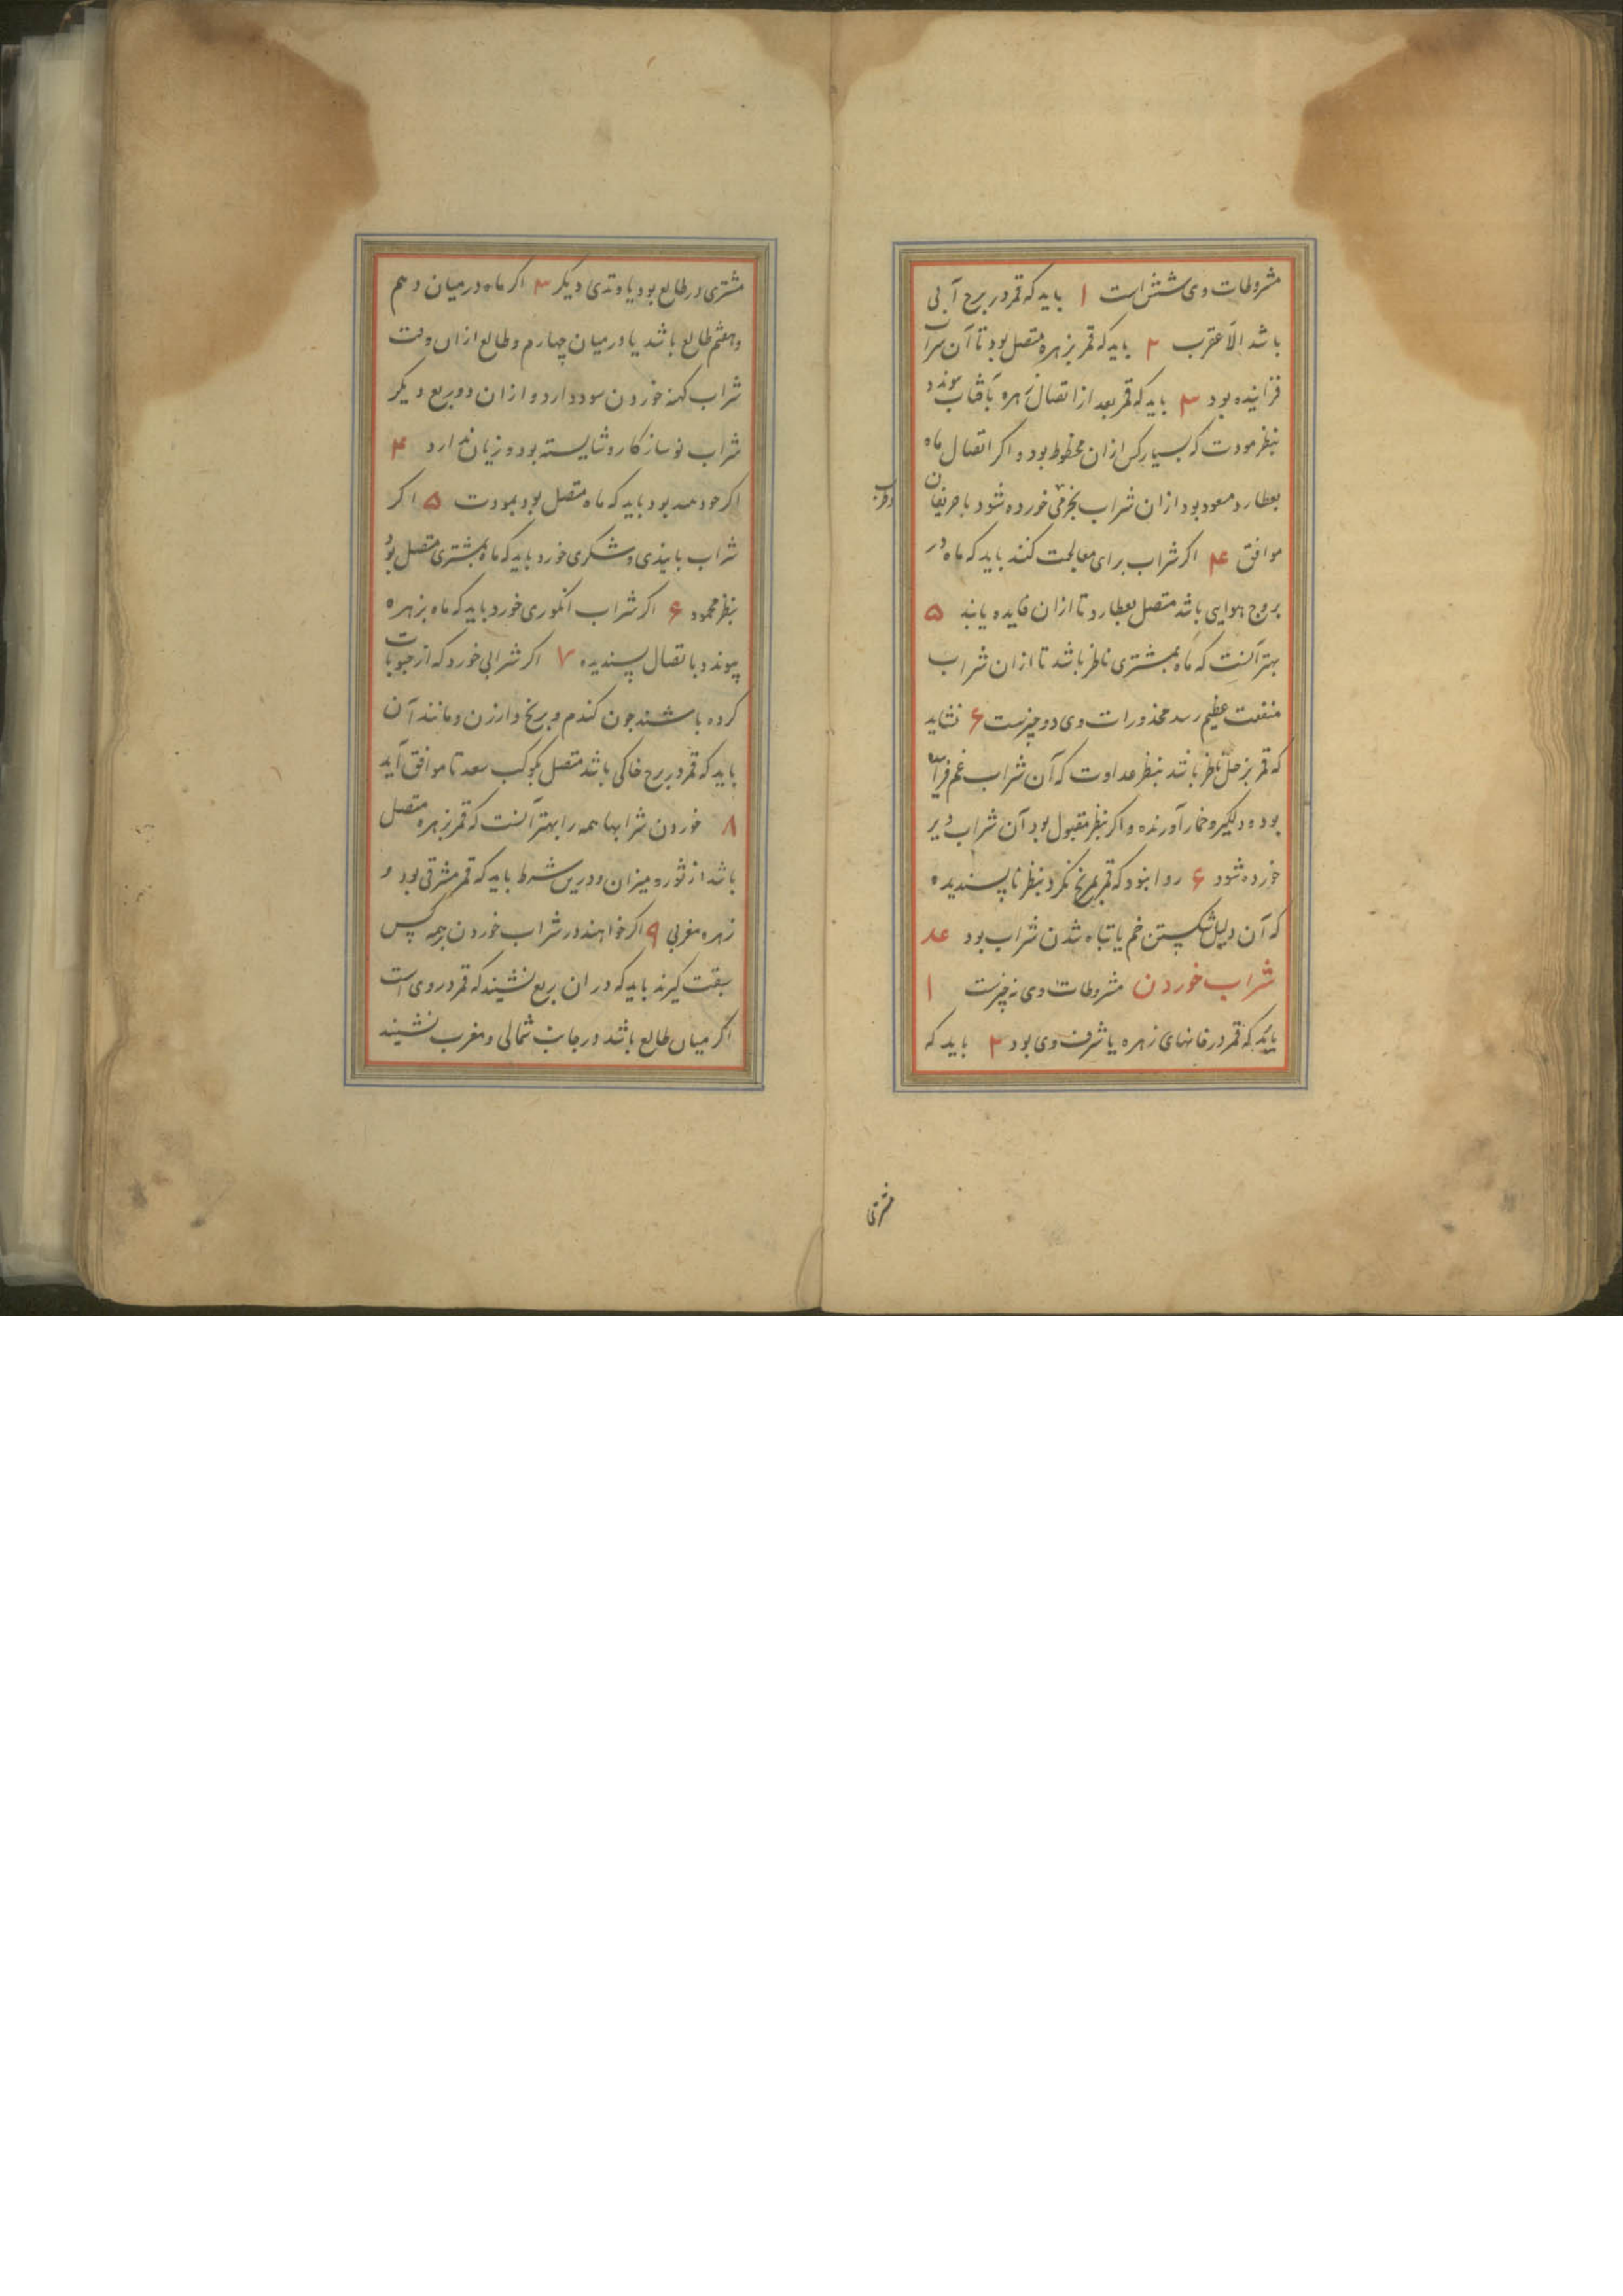 مشروطات وی شش است ۱ باید که قمر در برج آبی
باشد الّا عقرب ۲ باید که قمر بزهره متصل بود تا آن شراب
فزاینده بود ۳ باید که قمر بعد از اتصال زهره بآفتاب پیوندد
بنظر مودت که بسیار کس ازان محظوظ بود و اگر اتصال ماه
بعطارد مسعود بود ازان شراب بخرمی خورده شود با حریفان
وطرب
موافق ۴ اکر شراب برای معالجت کنند باید که ماه در
بروج هوایی باشد متصل بعطارد تا ازان فایده یابند ۵
بهتر آنست که ماه بمشتری ناظر باشد تا ازان شراب
منفعت عظیم رسد محذورات وی دو چیزست ۶ نشاید
که قمر بزحل ناظر باشد بنظر عداوت که آن شراب غم فزاینده
بود و دلکیر و خمار آورنده و اکر بنظر مقبول بود آن شراب دیر
خورده شود ۶ روا نبود که قمر بمریخ نکرد بنظر ناپسندیده
که آن دلیل شکستن خم یا تباه شدن شراب بود عد
شراب خوردن مشروطات وی نه چیزست ۱
باید که قمر در خانهای زهره یا شرف وی بود ۲ باید که
مشتری
مشتری در طالع بود یا وتدی دیکر ۳ اکر ماه در میان دهم
و هفتم طالع باشد یا در میان چهارم و طالع ازان وقت
شراب کهنه خوردن سود دارد و ازان دو ربع دیکر
شراب نو سازکار و شایسته بود و زیان ندارد ۴
اکر بود باید که ماه متصل بود بمودت ۵ اکر
شراب بانیذی و شکری خورد باید که ماه بمشتری متصل بود
بنظر محمود ۶ اکر شراب انکوری خورد باید که ماه بزهره
پیوندد باتصال پسندیده ۷ اکر شرابی خورد که از حبوبات
کرده باشند چون کندم و برنج و ارزن و مانند آن
باید که قمر در برج خاکی باشد متصل بکوکب سعد تا موافق آید
۸ خوردن شرابها همه را بهتر آنست که قمر بزهره متصل
باشد از ثور و میزان و درین شرط باید که قمر مشرقی بود و
زهره مغربی ۹ اکر خواهند در شراب خوردن بر همه کس
سبقت کیرند باید که در ان ربع نشیند که قمر در وی است
اکر میان طالع باشد در جانب شمالی و مغرب نشیند